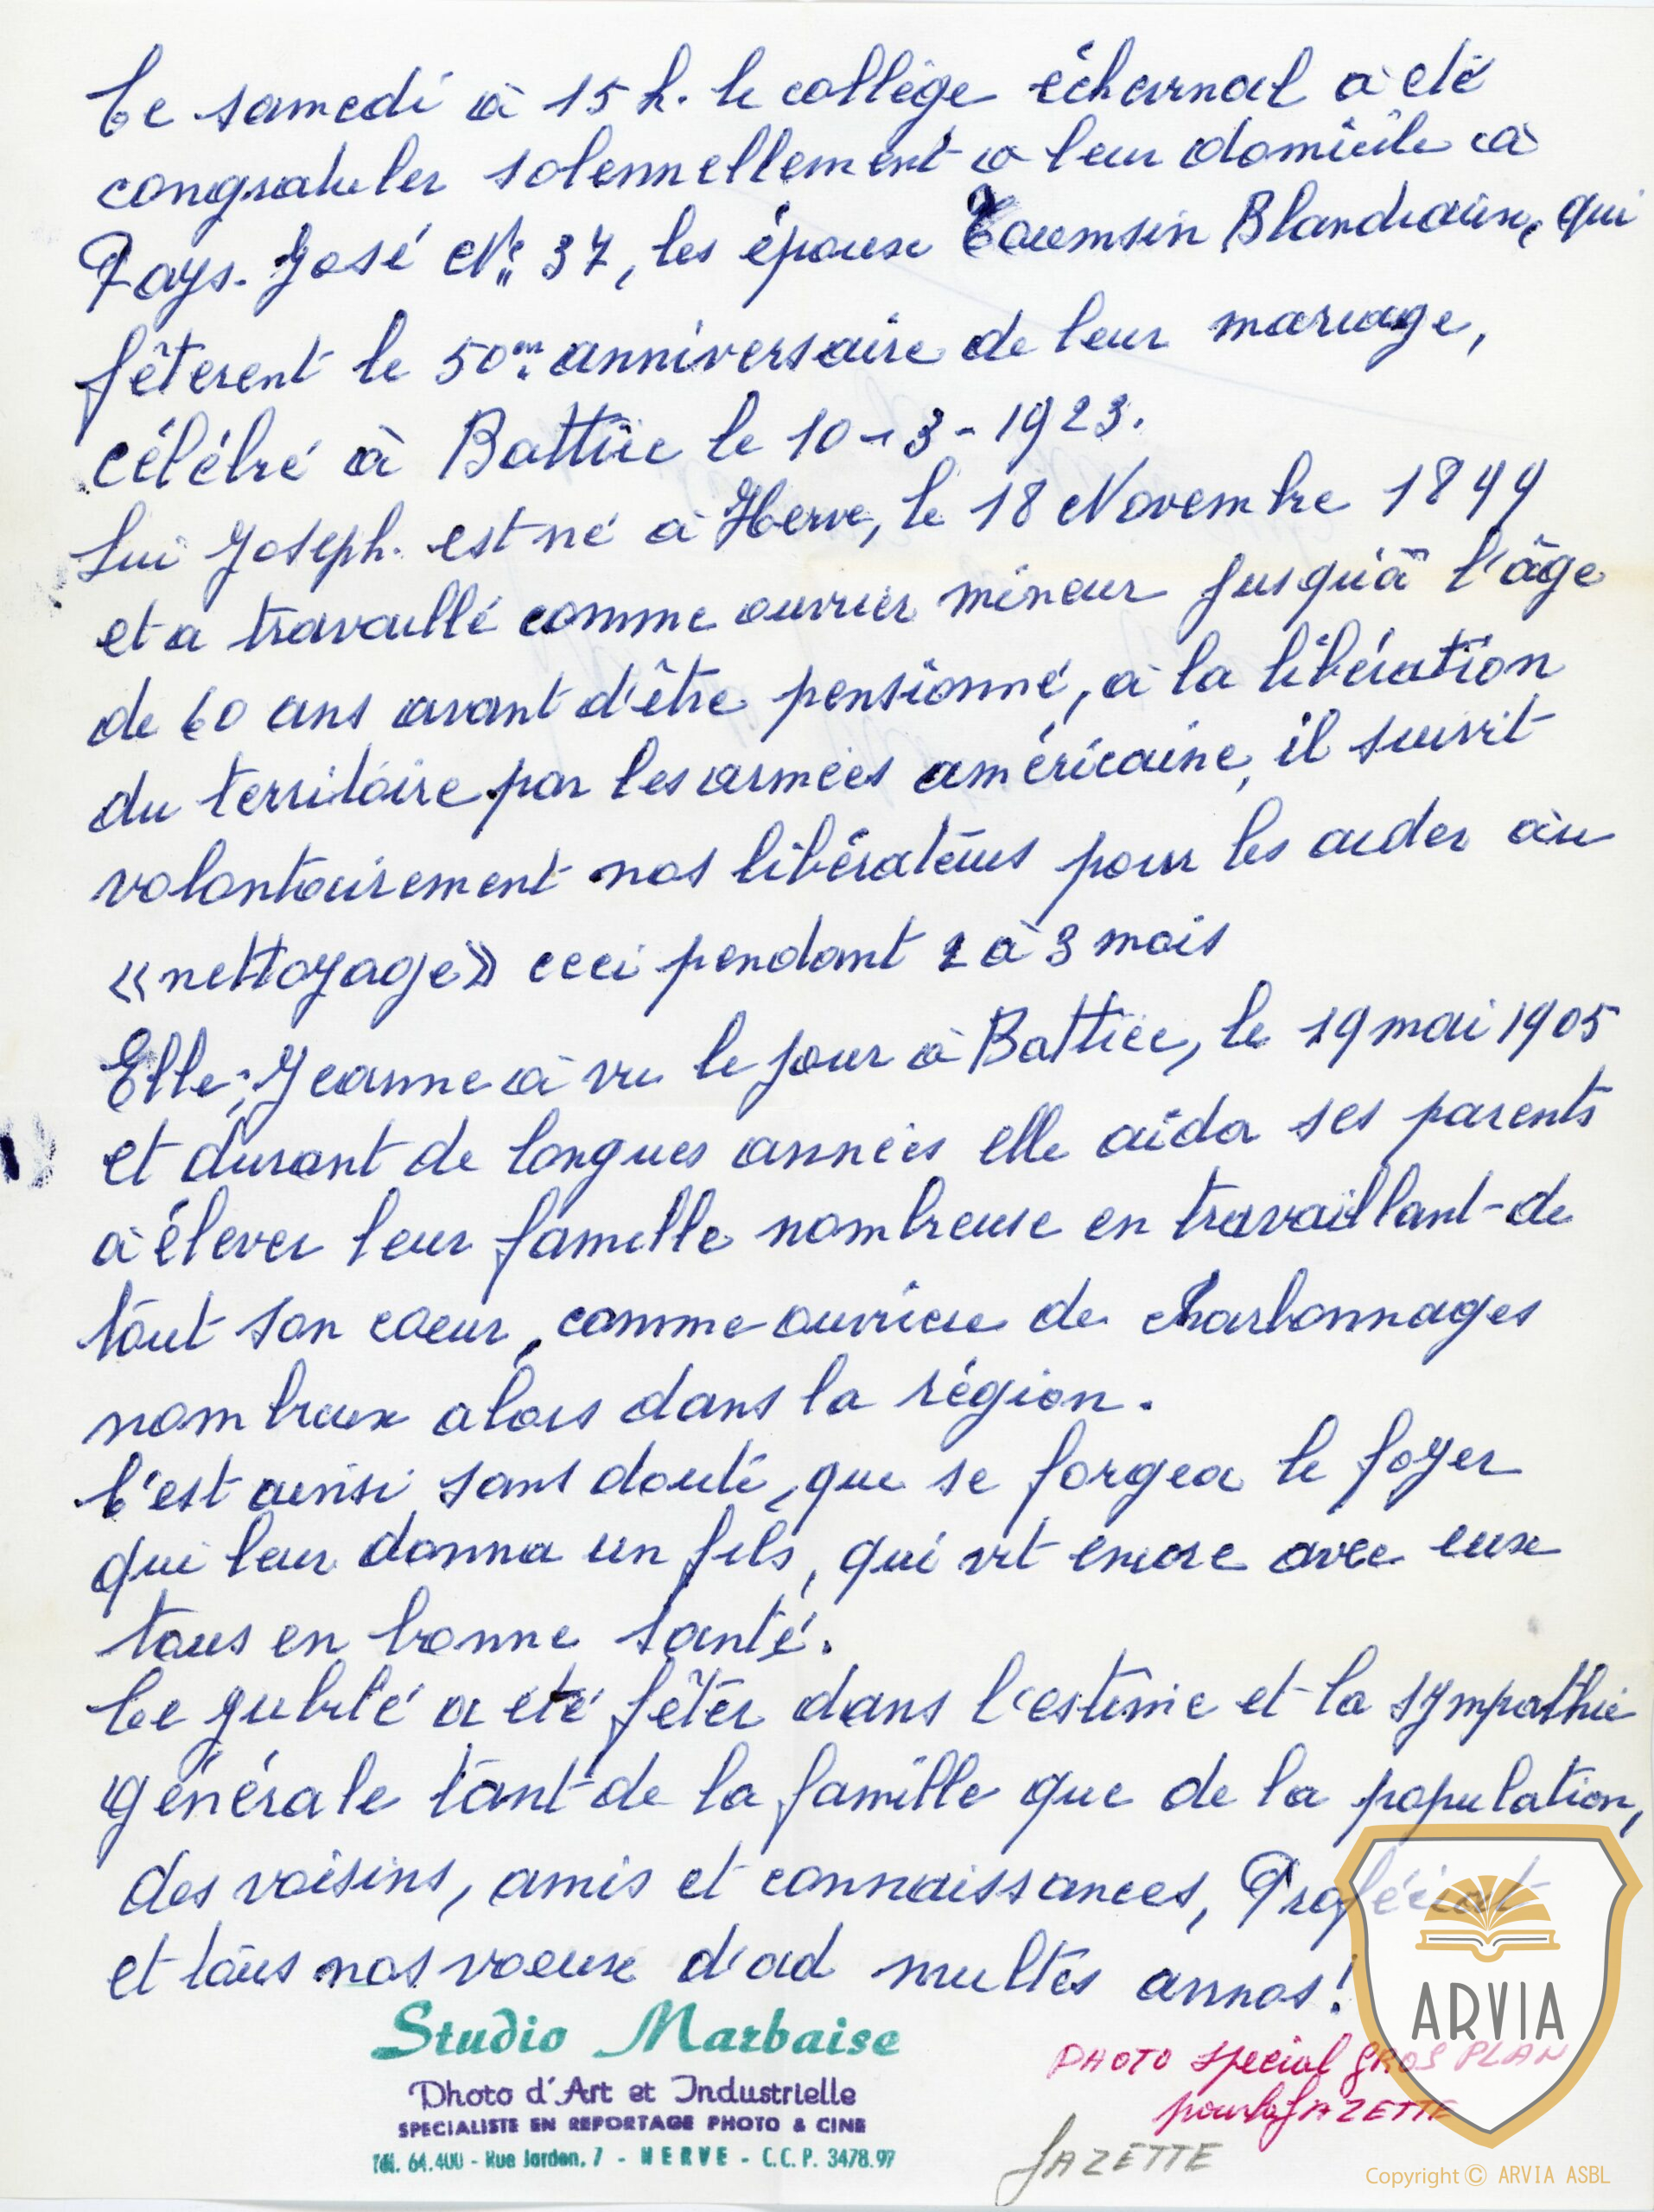 Ce samedi à 15 h. le collège échevinal a été
congratuler solennellement a leur domicile à
Pays-José N° 37, les époux Toumsin Blandiaux, qui
fêterent le 50em anniversaire de leur mariage,
célébré à Battice le 10-3-1923.
Lui Joseph. est né à Herve, le 18 Novembre 1899
et a travaillé comme ouvrier mineur jusqu'à l'âge
de 60 ans avant d'être pensionné, à la libération
du territoire par les armées américaine, il suivit
volontairement nos libérateurs pour les aider au
«nettoyage» ceci pendant 2 à 3 mois
Elle; Jeanne à vu le jour à Battice, le 19 mai 1905
et durant de longues années elle aida ses parents
à élever leur famille nombreuse en travaillant de
tout son coeur, comme ouvriere de charbonnages
nombreux alors dans la région.
C'est ainsi sans doute, que se forgea le foyer
qui leur donna un fils, qui vit encore avec eux
tous en bonne santé.
Ce jubilé a été fêter dans l'estime et la sympathie
générale tant de la famille que de la population,
des voisins, amis et connaissances, Proficiat
et tous nos voeux d'ad multes annos!
Studio Marbaise
Photo d'Art et Industrielle
SPECIALISTE EN REPORTAGE PHOTO & CINE
Tél. 64.400 - Rue Jardon, 7 - HERVE - C.C.P. 3478.97
PHOTO spécial GROS PLAN
pour la GAZETTE
GAZETTE
ARVIA
Copyright © ARVIA ASBL